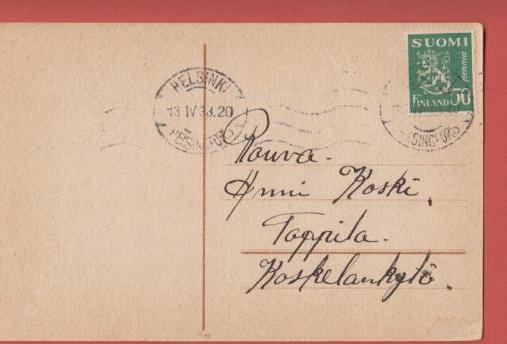 SUOMI
50 penniä
FINLAND
HELSINKI
13 IV 33.20
HELSINGFORS
HELSINGFORS
Rouva.
Anni Koski.
Toppila.
Koskelankylä.